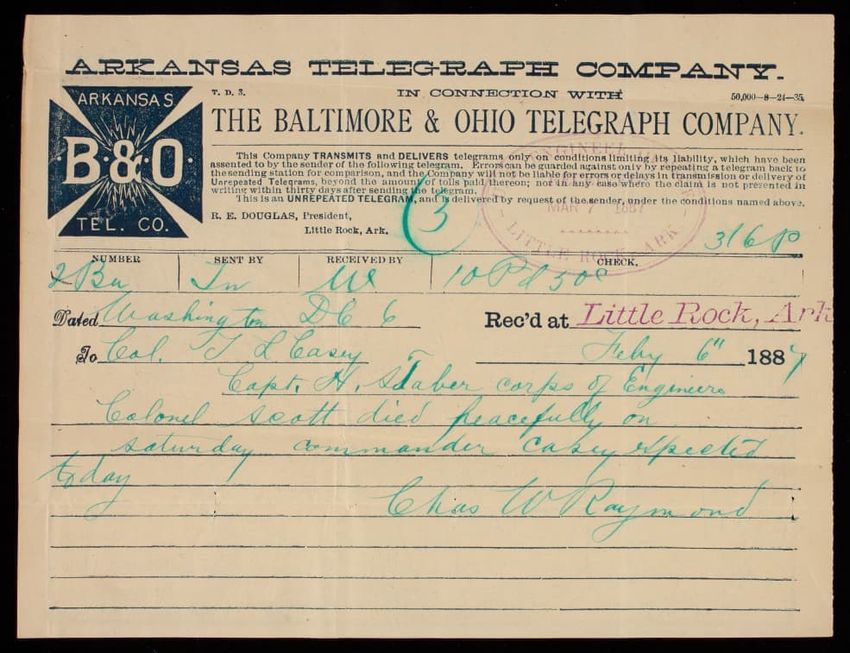 ARKANSAS TELEGRAPH COMPANY.
T. D. 3. IN CONNECTION WITH 50,000—8—24—35,
THE BALTIMORE & OHIO TELEGRAPH COMPANY.
ARKANSAS
B. & O.
TEL. CO.
This Company TRANSMITS and DELIVERS telegrams only on conditions limiting its liability, which have been
assented to by the sender of the following telegram. Errors can be guarded against only by repeating a telegram back to
the sending station for comparison, and the Company will not be liable for errors or delays in transmission or delivery of
Unrepeated Telegrams, beyond the amount of tolls paid thereon; nor in any case where the claim is not presented in
writing within thirty days after sending the telegram.
This is an UNREPEATED TELEGRAM, and is delivered by request of the sender, under the conditions named above.
R. E. DOUGLAS, President,
Little Rock, Ark.
3
MAR 7 1887
LITTLE ROCK, ARK
316P
NUMBER SENT BY RECEIVED BY CHECK.
10 Pd 50c
Dated Washington DC 6 Rec'd at Little Rock, Ark
To Col. T L Casey Feby 6" 1887
Capt. H. S Taber corps of Engineers
Colonel scott died peacefully on
saturday commander casey expected
today
Chas W Raymond